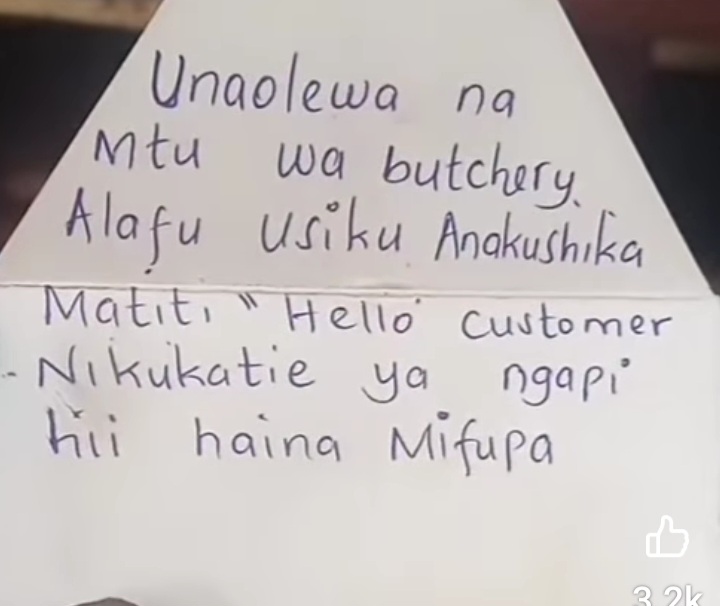 Unaolewa na
Mtu wa butchery.
Alafu usiku Anakushika
Matiti "Hello customer
Nikukatie ya ngapi
hii haina Mifupa
3.2k